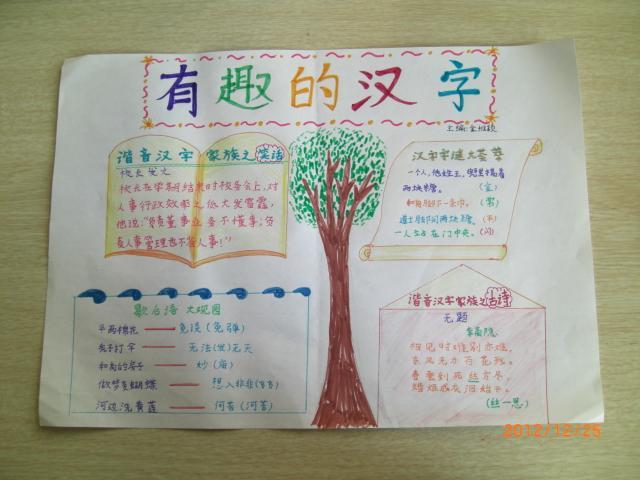 有趣的汉字
主编:金
谐音汉字家族之笑话
校长发火
校长在学期结束时校务会上,对
人事行政效率之低大发雷霆,
他说:"负责董事业务不懂事;负
责人事管理也不管人事!"
汉字字谜大荟萃
一个人,他姓王,兜里揣着
两块糖。 (金)
(胃)
道士腰间两块糖。(平)
一人站在门中央。(闪)
歇后语 大观园
免谈(免弹)
无法(发)无天
和尚的房子 妙(庙)
做梦变蝴蝶 想入非非(飞飞)
河边洗黄莲 何苦(河苦)
谐音汉字家族之古诗
无题
李商隐
相见时难别亦难,
东风无力百花残。
春蚕到死丝方尽,
蜡炬成灰泪始干。
(丝—思)
2012/12/25